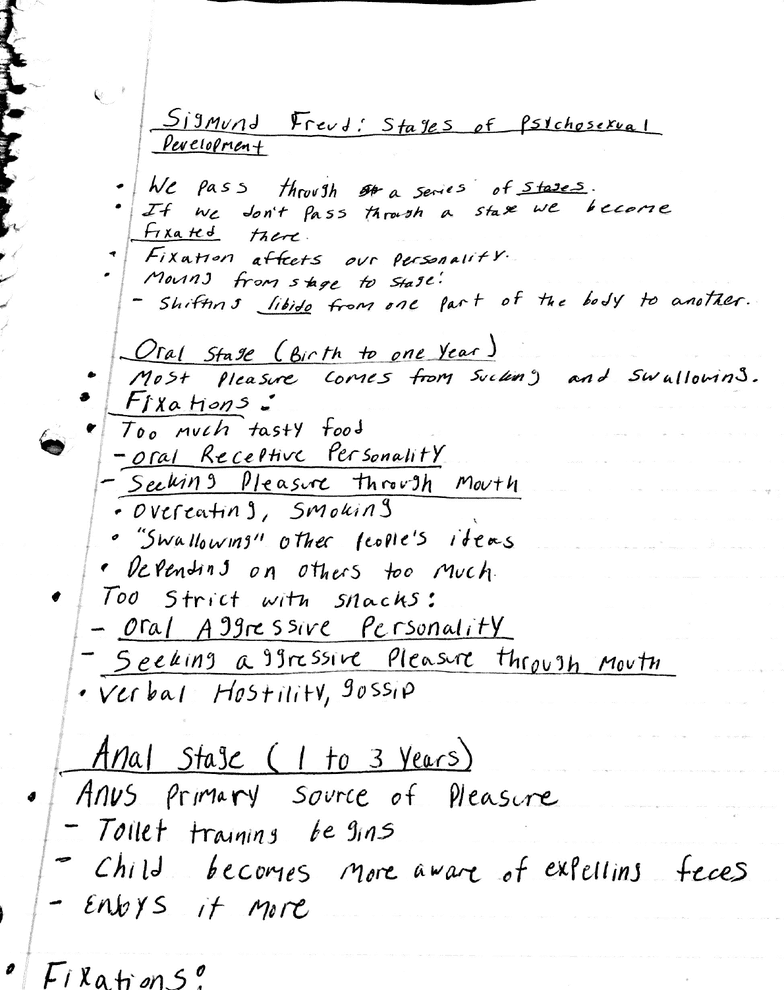 Sigmund Freud: Stages of Psychosexual
Development
• We pass through a series of stages.
• If we don't pass through a stage we become
fixated there.
• Fixation affects our personality.
• Moving from stage to stage:
- Shifting libido from one part of the body to another.
Oral Stage (Birth to one year)
• Most pleasure comes from sucking and swallowing.
• Fixations:
• Too much tasty food
- Oral Receptive Personality
- Seeking Pleasure through Mouth
• Overeating, smoking
• "Swallowing" other people's ideas
• Depending on others too much.
• Too strict with snacks:
- Oral Aggressive Personality
- Seeking aggressive Pleasure through Mouth
• Verbal Hostility, gossip
Anal Stage (1 to 3 Years)
• Anus primary source of Pleasure
- Toilet training begins
- Child becomes more aware of expelling feces
- Enjoys it more
• Fixations: